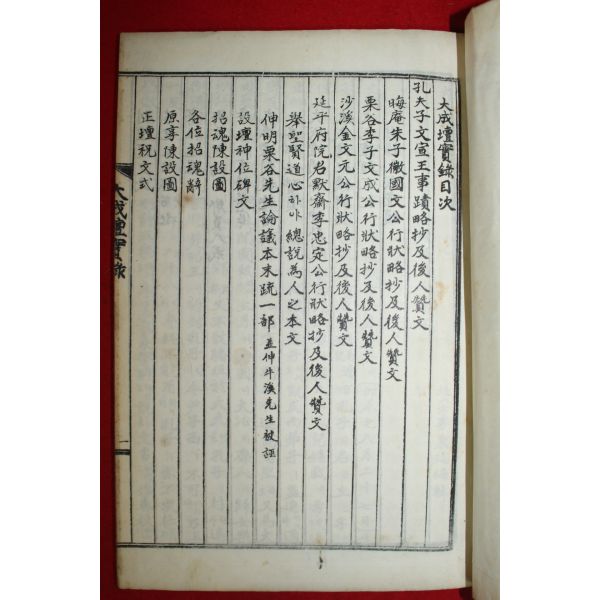 大成壇實錄目次
孔夫子文宣王事蹟略抄及後人贊文
晦庵朱子徽國文公行狀略抄及後人贊文
栗谷李子文成公行狀略抄及後人贊文
沙溪金文元公行狀略抄及後人贊文
延平府院君默齋李忠定公行狀略抄及後人贊文
舉聖賢道心 總說為人之本文
伸明栗谷先生論議本末疏一部 並伸牛溪先生被誣
設壇神位碑文
招魂陳設圖
各位招魂辭
原享陳設圖
正壇祝文式
大成壇實錄
一